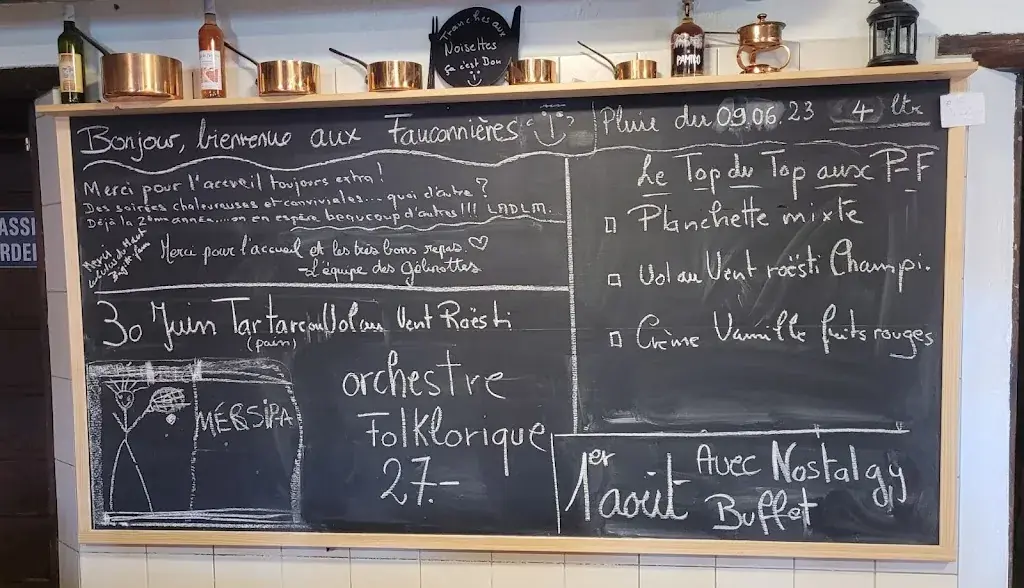 Tranches aux
Noisettes
ça c'est Bon
PAMIRO
ASSI
RDEI
Bonjour, bienvenue aux Fauconnières
Pluie du 09.06.23 4 ltx
Merci pour l'accueil toujours extra!
Des soirées chaleureuses et conviviales... quoi d'autre?
Déjà la 2ème année.... on en espère beaucoup d'autres!!! LADLM.
Merci
Merci pour l'accueil et les très bons repas. ♡
-L'équipe des Gélinottes
30 Juin Tartare ou Vol au Vent Roësti
(pain)
MERSIPA
orchestre
Folklorique
27.-
Le Top du Top aux P-F
Planchette mixte
Vol au Vent roësti Champi.
Crème Vanille fruits rouges
1er août Avec Nostalgy
Buffet